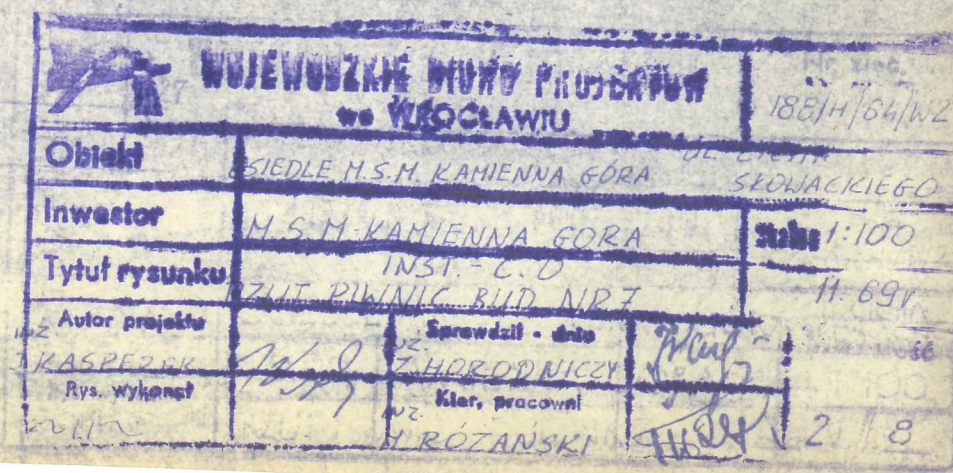 WOJEWÓDZKIE BIURO PROJEKTÓW
we WROCŁAWIU
Nr zlec.
188/H/64/WZ
Obiekt OSIEDLE M.S.M. KAMIENNA GÓRA UL.
SŁOWACKIEGO
Inwestor M.S.M. KAMIENNA GORA Skala 1:100
Tytuł rysunku INST. - C.O
RZUT PIWNIC BUD NR 7 11.69r
Autor projektu Sprawdził - dnia
INŻ. INŻ.
KASPEREK Z. HORODNICZY
Rys. wykonał Kier. pracowni
INŻ.
M. RÓŻAŃSKI 2 8